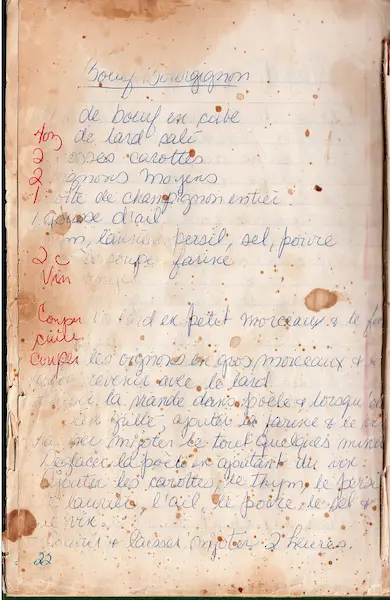 Boeuf Bourguignon
de boeuf en cube
4oz de lard salé
2 osses carottes
2 ignons moyens
1 oîte de champignon entier
1 gousse d'ail
ym, laurier, persil, sel, poivre
2 c à soupe farine
Vin
Couper lard en petit morceaux & le
cuire
Couper les oignons en gros morceaux &
revenir avec le lard
la viande dans poêle & lorsqu'
ajouter la farine & le
mijoter le tout quelques
Déglacer la poêle en ajoutant du vin
ajouter les carottes, le Thym, le
laurier, l'ail, le poivre, le sel &
le vin.
Couvrir & laisser mijoter 2 heures.
22